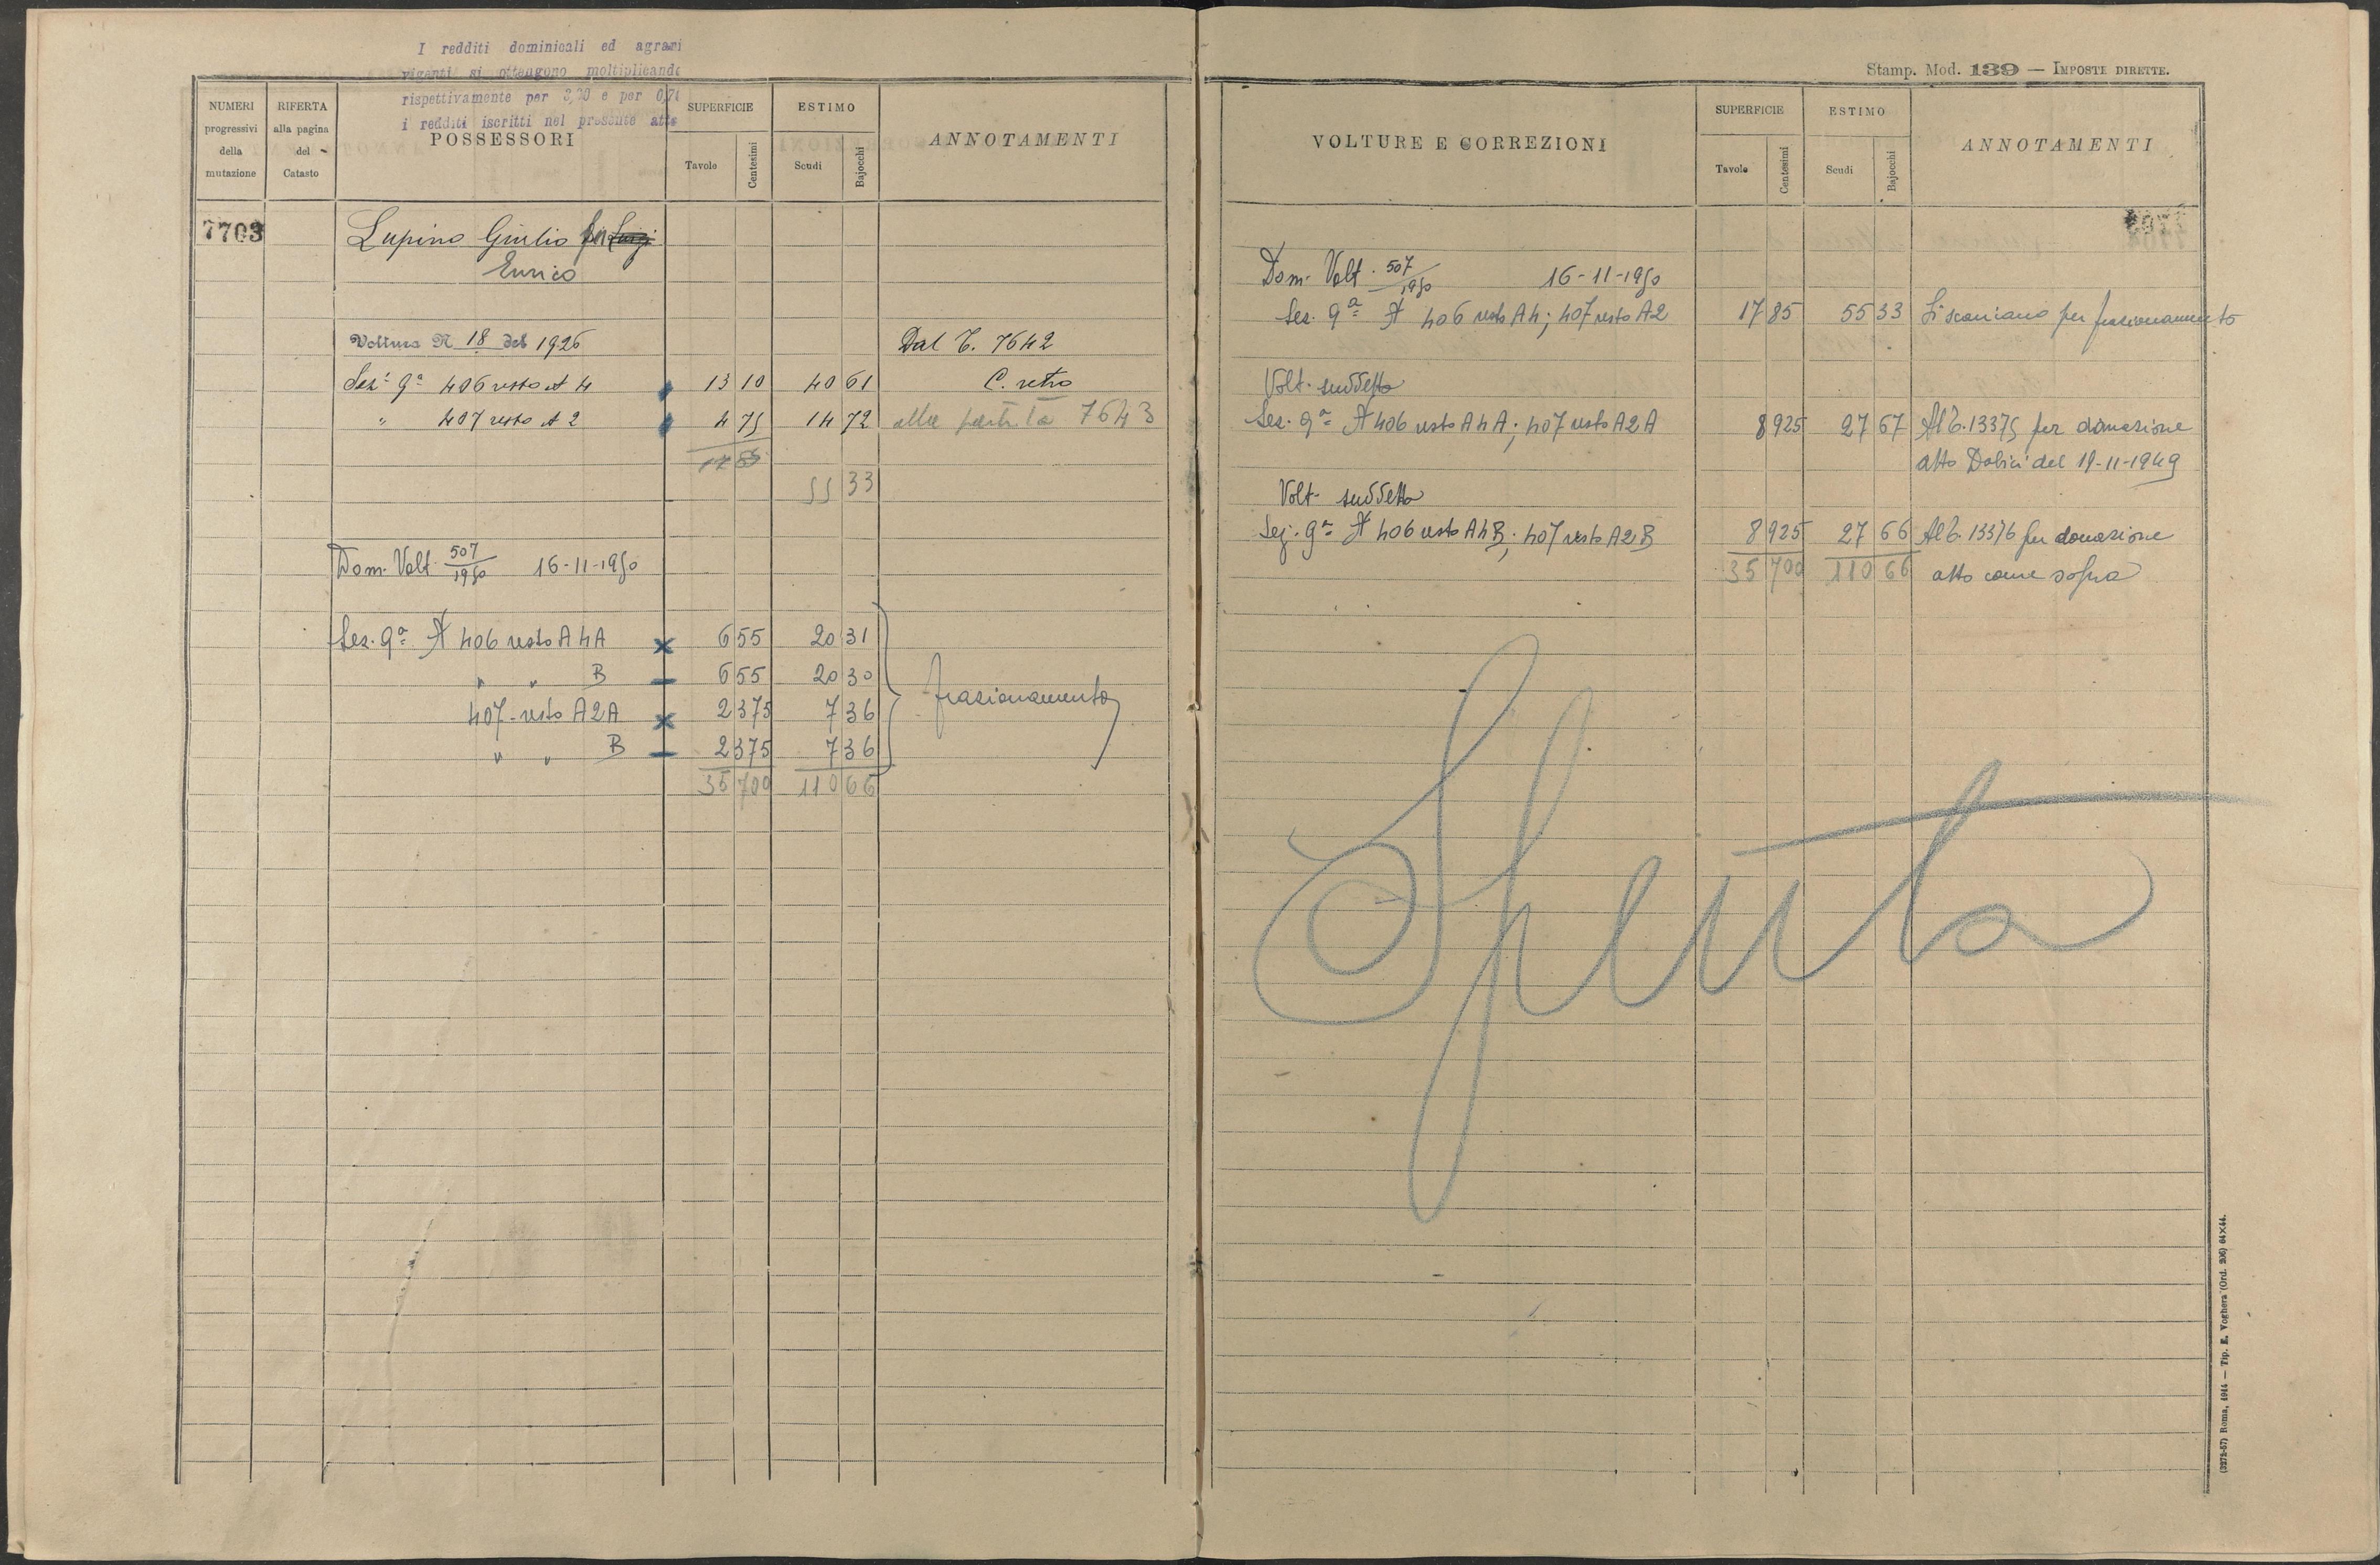 I redditi dominicali ed agrari
vigenti si ottengono moltiplicando
rispettivamente per 3,20 e per 0,70
i redditi iscritti nel presente atto
NUMERI progressivi della mutazione
RIFERTA alla pagina del Catasto
POSSESSORI
SUPERFICIE
Tavole
Centesimi
ESTIMO
Scudi
Bajocchi
ANNOTAMENTI
7703
Lupino Giulio fu Luigi
Enrico
Voltura N 18 del 1926
Dal T. 7642
Sez. 9ª 406 resto A 4 13 10 40 61 C. retro
" 407 resto A 2 4 75 14 72 alla partita 7643
17 85
55 33
Dom. Volt. 507/1950 16-11-1950
Sez. 9ª A 406 resto A4A 6 55 20 31
" " B 6 55 20 30
frazionamento
407 resto A2A 2 375 7 36
" " B 2 375 7 36
35 700 110 66
Stamp. Mod. 139 — IMPOSTE DIRETTE.
VOLTURE E CORREZIONI
SUPERFICIE
Tavole
Centesimi
ESTIMO
Scudi
Bajocchi
ANNOTAMENTI
Dom. Volt. 507/1950 16-11-1950
Sez. 9ª A 406 resto A4; 407 resto A2 17 85 55 33 Si scaricano per frazionamento
Volt. suddetta
Sez. 9ª A 406 resto A4A; 407 resto A2A 8 925 27 67 Al T. 13375 per donazione
atto Dolici del 19-11-1949
Volt. suddetta
Sez. 9ª A 406 resto A4B; 407 resto A2B 8 925 27 66 Al T. 13376 per donazione
35 700 110 66 atto come sopra
Spenta
(3272-57) Roma, 1944 — Tip. E. Voghera (Ord. 206) 64×44.